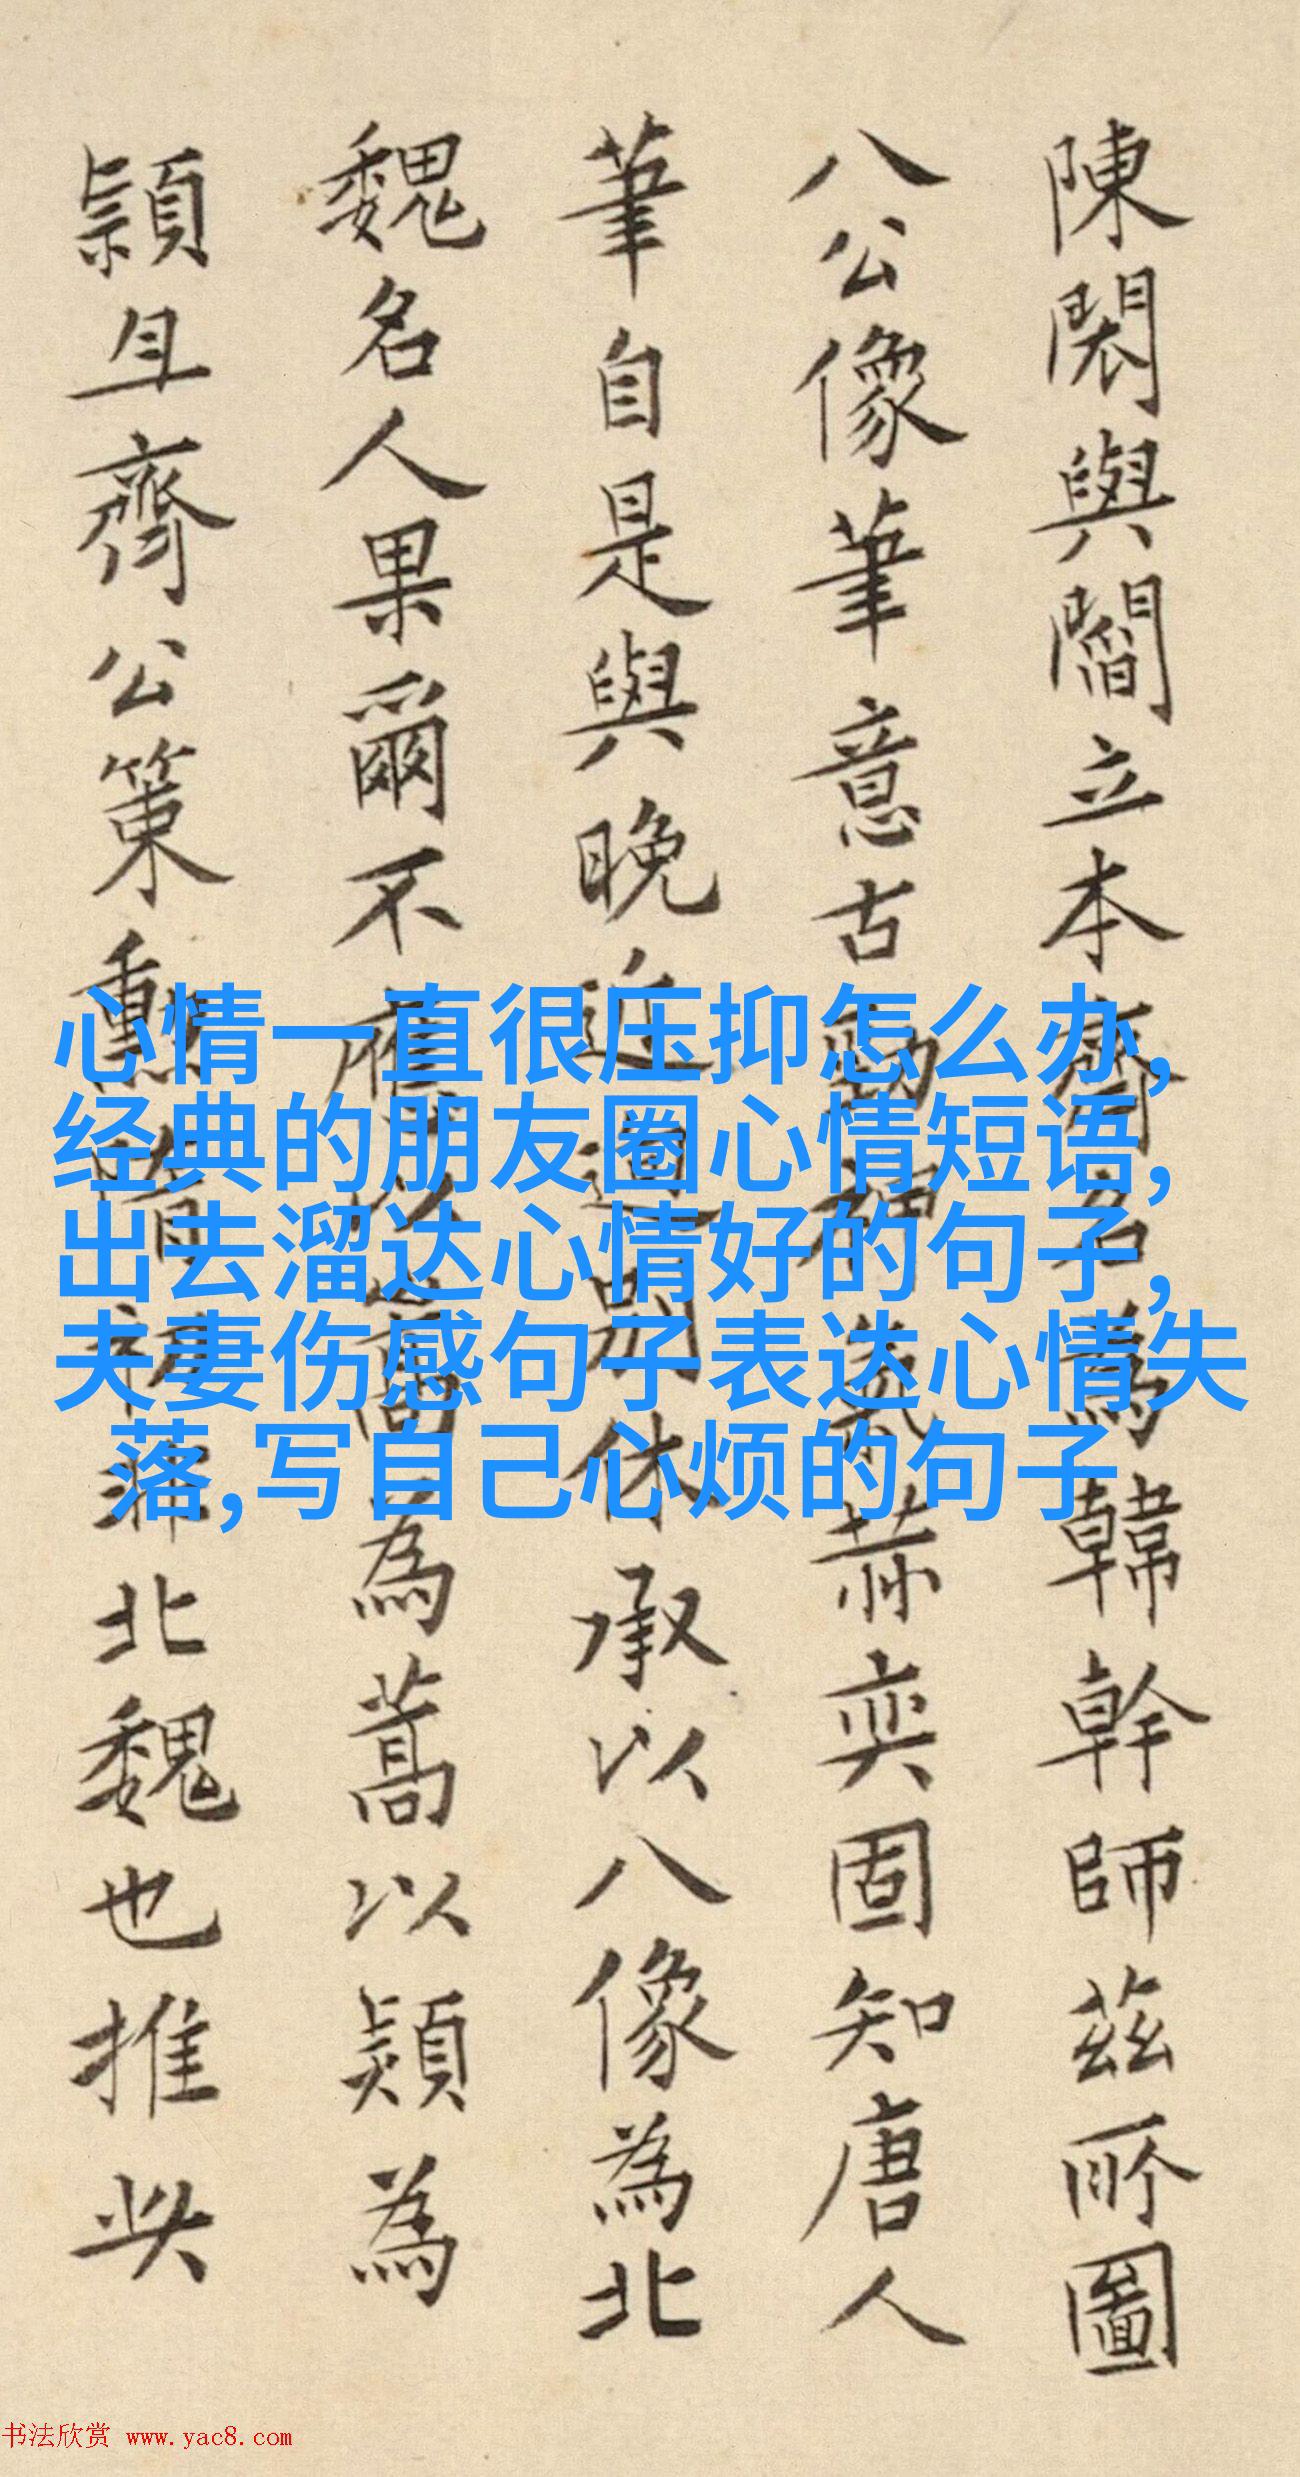 陳閎與閻立本齊名為韓幹師茲所圖
八公像筆意古神氣赫奕固知唐人
筆自是與晚近迥別休承以八像為北
魏名人果爾不應以高為蒿以熲為
頴且齊公策勳皆非北魏也推此
心情一直很压抑怎么办,
经典的朋友圈心情短语,
出去溜达心情好的句子,
夫妻伤感句子表达心情失
落,写自己心烦的句子
书法欣赏 www.yac8.com